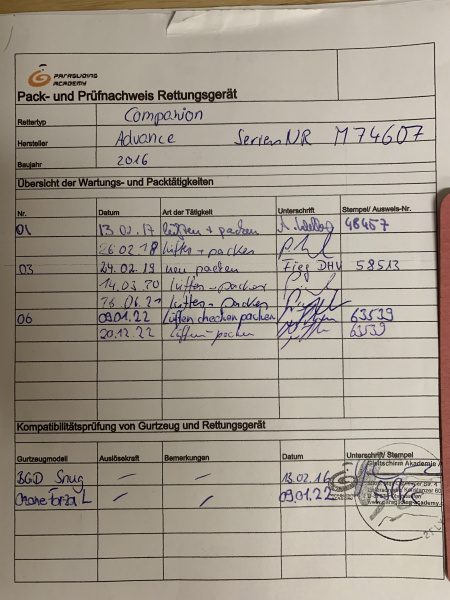 PARAGLIDING
ACADEMY
Pack- und Prüfnachweis Rettungsgerät
Rettertyp Companion
Hersteller Advance SerienNR M74607
Baujahr 2016
Übersicht der Wartungs- und Packtätigkeiten
Nr. Datum Art der Tätigkeit Unterschrift Stempel/ Ausweis-Nr.
01 13.02.17 lüften + packen 48457
26.02.18 lüften + packen
03 24.02.19 neu packen DHV 58513
14.03.20 lüften - packen
06.21 lüften - packen
06 09.01.22 Lüften checken packen 63539
20.12.22 lüften - packen 63539
Kompatibilitätsprüfung von Gurtzeug und Rettungsgerät
Gurtzeugmodell Auslösekraft Bemerkungen Datum Unterschrift/ Stempel
BGD Snug — — 13.02.16
Forza L 09.01.22
Gleitschirm Akademie